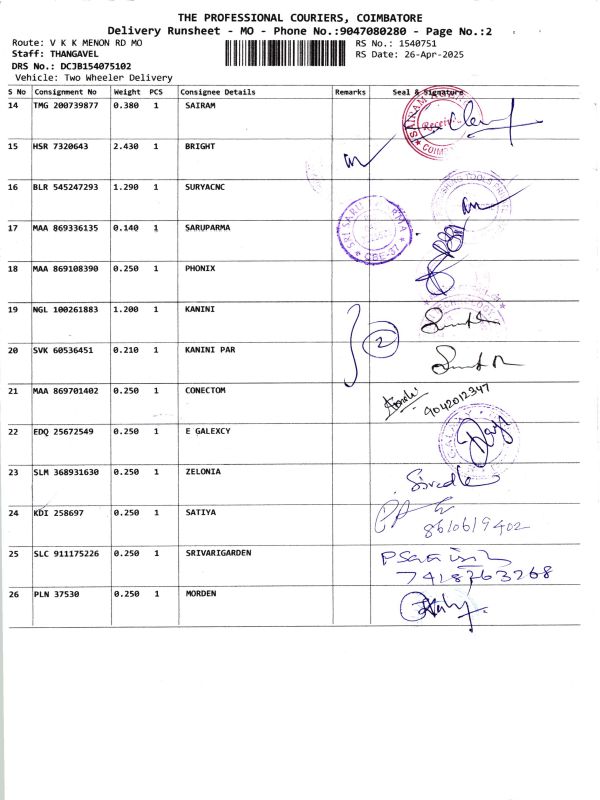 THE PROFESSIONAL COURIERS, COIMBATORE
Delivery Runsheet - MO - Phone No.:9047080280 - Page No.:2
Route: V K K MENON RD MO RS No.: 1540751
Staff: THANGAVEL RS Date: 26-Apr-2025
DRS No.: DCJB154075102
Vehicle: Two Wheeler Delivery
S No Consignment No Weight PCS Consignee Details Remarks Seal & Signature
14 TMG 200739877 0.380 1 SAIRAM
15 HSR 7320643 2.430 1 BRIGHT
16 BLR 545247293 1.290 1 SURYACNC
17 MAA 869336135 0.140 1 SARUPARMA
18 MAA 869108390 0.250 1 PHONIX
19 NGL 100261883 1.200 1 KANINI
2
20 SVK 60536451 0.210 1 KANINI PAR
21 MAA 869701402 0.250 1 CONECTOM 9042012347
22 EDQ 25672549 0.250 1 E GALEXCY
23 SLM 368931630 0.250 1 ZELONIA
24 KDI 258697 0.250 1 SATIYA 8610619402
25 SLC 911175226 0.250 1 SRIVARIGARDEN
7418763268
26 PLN 37530 0.250 1 MORDEN